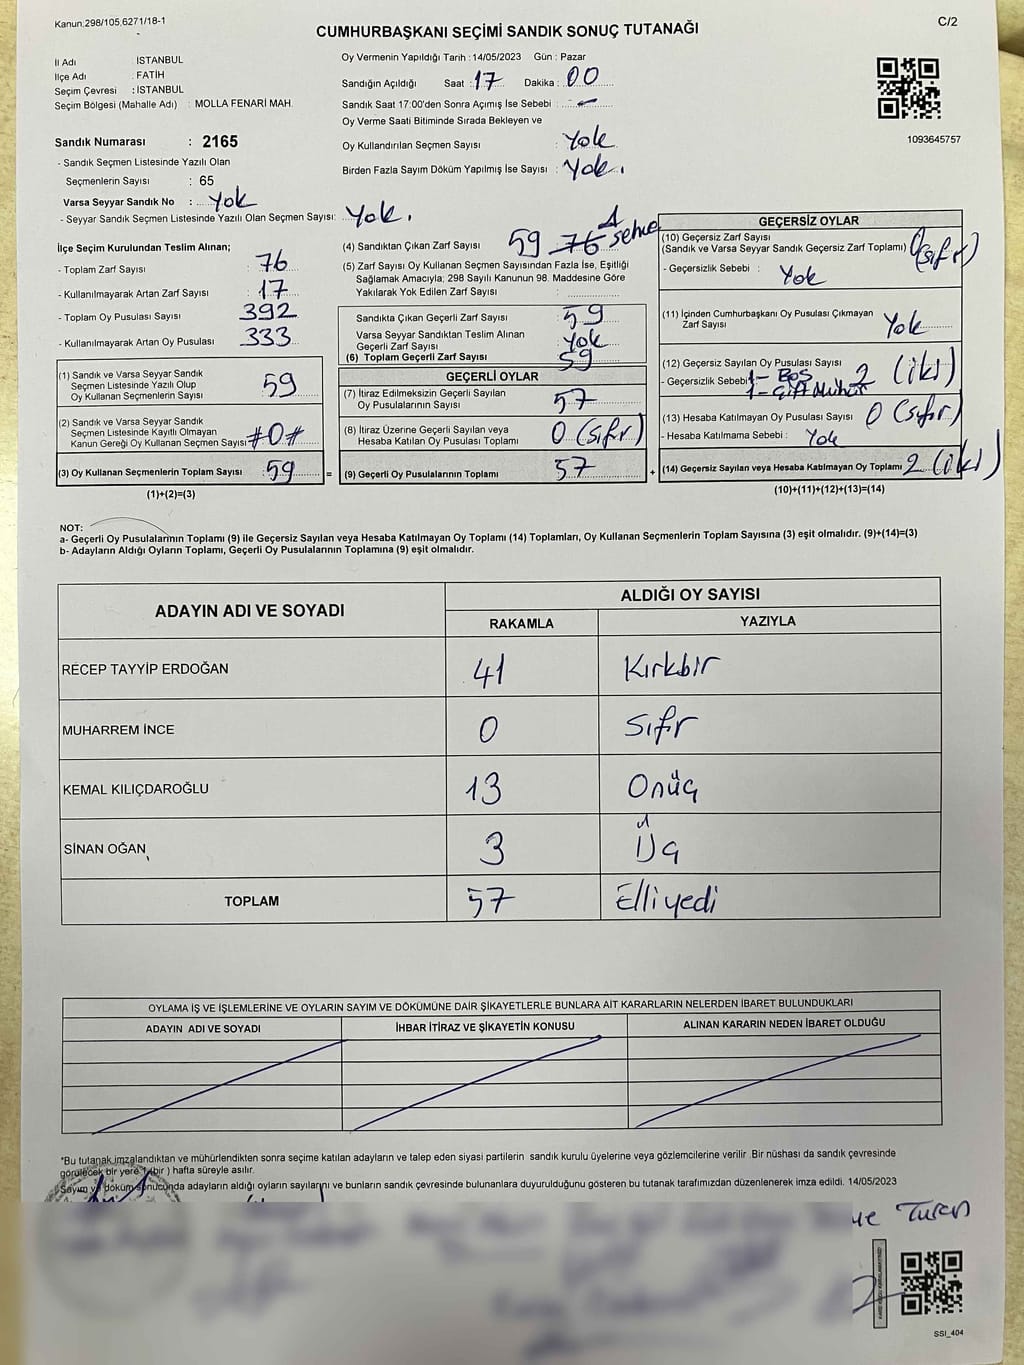 Kanun:298/105,6271/18-1
C/2
CUMHURBAŞKANI SEÇİMİ SANDIK SONUÇ TUTANAĞI
İl Adı : İSTANBUL
İlçe Adı : FATİH
Seçim Çevresi : İSTANBUL
Seçim Bölgesi (Mahalle Adı) : MOLLA FENARİ MAH.
Sandık Numarası : 2165
- Sandık Seçmen Listesinde Yazılı Olan
Seçmenlerin Sayısı : 65
Varsa Seyyar Sandık No : Yok
- Seyyar Sandık Seçmen Listesinde Yazılı Olan Seçmen Sayısı: Yok.
Oy Vermenin Yapıldığı Tarih : 14/05/2023 Gün : Pazar
Sandığın Açıldığı Saat : 17 Dakika : 00
Sandık Saat 17:00'den Sonra Açımış İse Sebebi : -
Oy Verme Saati Bitiminde Sırada Bekleyen ve
Oy Kullandırılan Seçmen Sayısı : Yok
Birden Fazla Sayım Döküm Yapılmış İse Sayısı : Yok.
1093645757
İlçe Seçim Kurulundan Teslim Alınan;
- Toplam Zarf Sayısı : 76
- Kullanılmayarak Artan Zarf Sayısı : 17
- Toplam Oy Pusulası Sayısı : 392
- Kullanılmayarak Artan Oy Pusulası : 333
(1) Sandık ve Varsa Seyyar Sandık
Seçmen Listesinde Yazılı Olup
Oy Kullanan Seçmenlerin Sayısı : 59
(2) Sandık ve Varsa Seyyar Sandık
Seçmen Listesinde Kayıtlı Olmayan
Kanun Gereği Oy Kullanan Seçmen Sayısı : #0#
(3) Oy Kullanan Seçmenlerin Toplam Sayısı : 59 =
(1)+(2)=(3)
(4) Sandıktan Çıkan Zarf Sayısı 59 76 sehven
(5) Zarf Sayısı Oy Kullanan Seçmen Sayısından Fazla İse, Eşitliği
Sağlamak Amacıyla; 298 Sayılı Kanunun 98. Maddesine Göre
Yakılarak Yok Edilen Zarf Sayısı :
Sandıkta Çıkan Geçerli Zarf Sayısı : 59
Varsa Seyyar Sandıktan Teslim Alınan
Geçerli Zarf Sayısı : Yok
(6) Toplam Geçerli Zarf Sayısı : 59
GEÇERLİ OYLAR
(7) İtiraz Edilmeksizin Geçerli Sayılan
Oy Pusulalarının Sayısı : 57
(8) İtiraz Üzerine Geçerli Sayılan veya
Hesaba Katılan Oy Pusulası Toplamı : 0 (sıfır)
(9) Geçerli Oy Pusulalarının Toplamı : 57 +
GEÇERSİZ OYLAR
(10) Geçersiz Zarf Sayısı
(Sandık ve Varsa Seyyar Sandık Geçersiz Zarf Toplamı) 0 (sıfır)
- Geçersizlik Sebebi : Yok
(11) İçinden Cumhurbaşkanı Oy Pusulası Çıkmayan
Zarf Sayısı Yok
(12) Geçersiz Sayılan Oy Pusulası Sayısı 2 (iki)
- Geçersizlik Sebebi : 1- Boş
1- Çift Mühür
(13) Hesaba Katılmayan Oy Pusulası Sayısı 0 (sıfır)
- Hesaba Katılmama Sebebi : Yok
(14) Geçersiz Sayılan veya Hesaba Katılmayan Oy Toplamı 2 (iki)
(10)+(11)+(12)+(13)=(14)
NOT:
a- Geçerli Oy Pusulalarının Toplamı (9) ile Geçersiz Sayılan veya Hesaba Katılmayan Oy Toplamı (14) Toplamları, Oy Kullanan Seçmenlerin Toplam Sayısına (3) eşit olmalıdır. (9)+(14)=(3)
b- Adayların Aldığı Oyların Toplamı, Geçerli Oy Pusulalarının Toplamına (9) eşit olmalıdır.
ADAYIN ADI VE SOYADI ALDIĞI OY SAYISI
RAKAMLA YAZIYLA
RECEP TAYYİP ERDOĞAN 41 Kırkbir
MUHARREM İNCE 0 Sıfır
KEMAL KILIÇDAROĞLU 13 Onüç
SİNAN OĞAN 3 Üç
TOPLAM 57 Elliyedi
OYLAMA İŞ VE İŞLEMLERİNE VE OYLARIN SAYIM VE DÖKÜMÜNE DAİR ŞİKAYETLERLE BUNLARA AİT KARARLARIN NELERDEN İBARET BULUNDUKLARI
ADAYIN ADI VE SOYADI İHBAR İTİRAZ VE ŞİKAYETİN KONUSU ALINAN KARARIN NEDEN İBARET OLDUĞU
*Bu tutanak imzalandıktan ve mühürlendikten sonra seçime katılan adayların ve talep eden siyasi partilerin sandık kurulu üyelerine veya gözlemcilerine verilir .Bir nüshası da sandık çevresinde
görülecek bir yere 1 (bir ) hafta süreyle asılır.
*Sayım ve döküm sonucunda adayların aldığı oyların sayılarını ve bunların sandık çevresinde bulunanlara duyurulduğunu gösteren bu tutanak tarafımızdan düzenlenerek imza edildi. 14/05/2023
Turan
SSI_404